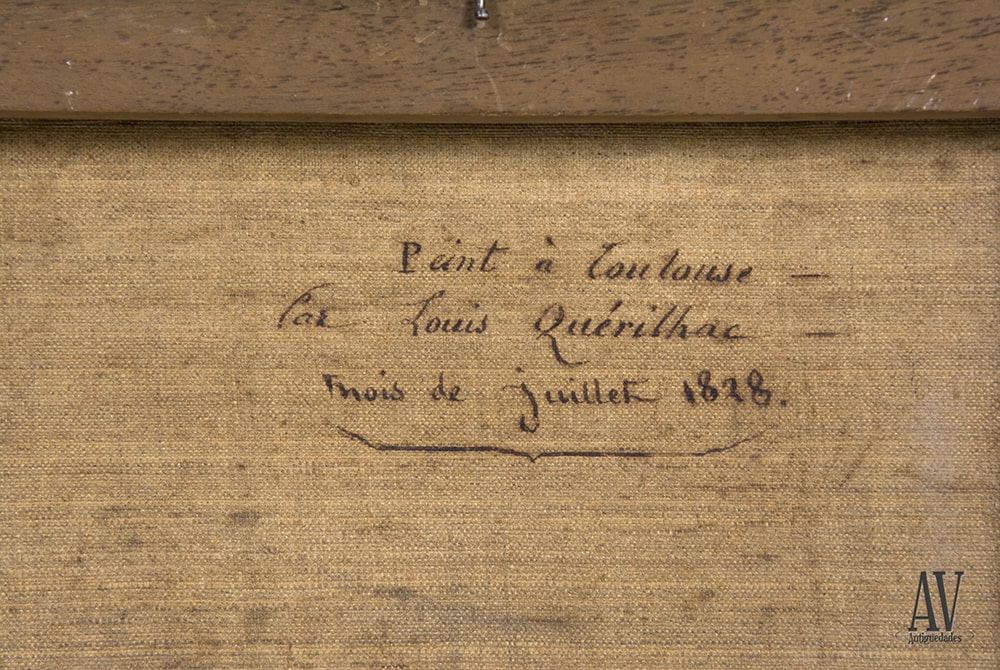 Peint à Toulouse —
Par Louis Quérilhac —
mois de juillet 1828.
AV
Antigüedades